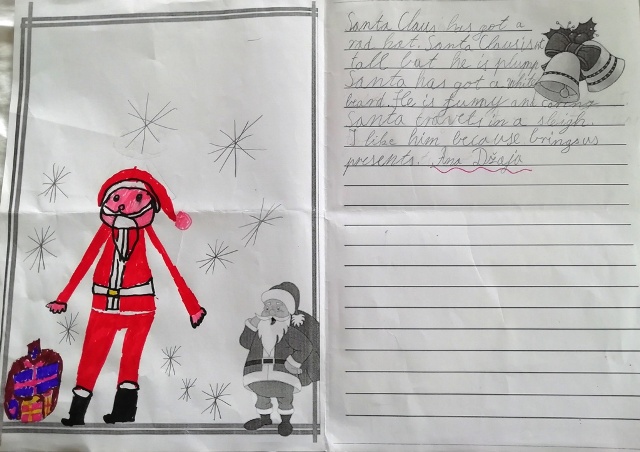 Santa Claus has got a
red hat. Santa Claus is not
tall but he is plump.
Santa has got a white
beard. He is funny and caring
Santa travels in a sleigh.
I like him because brings us
presents. Ana Džaja